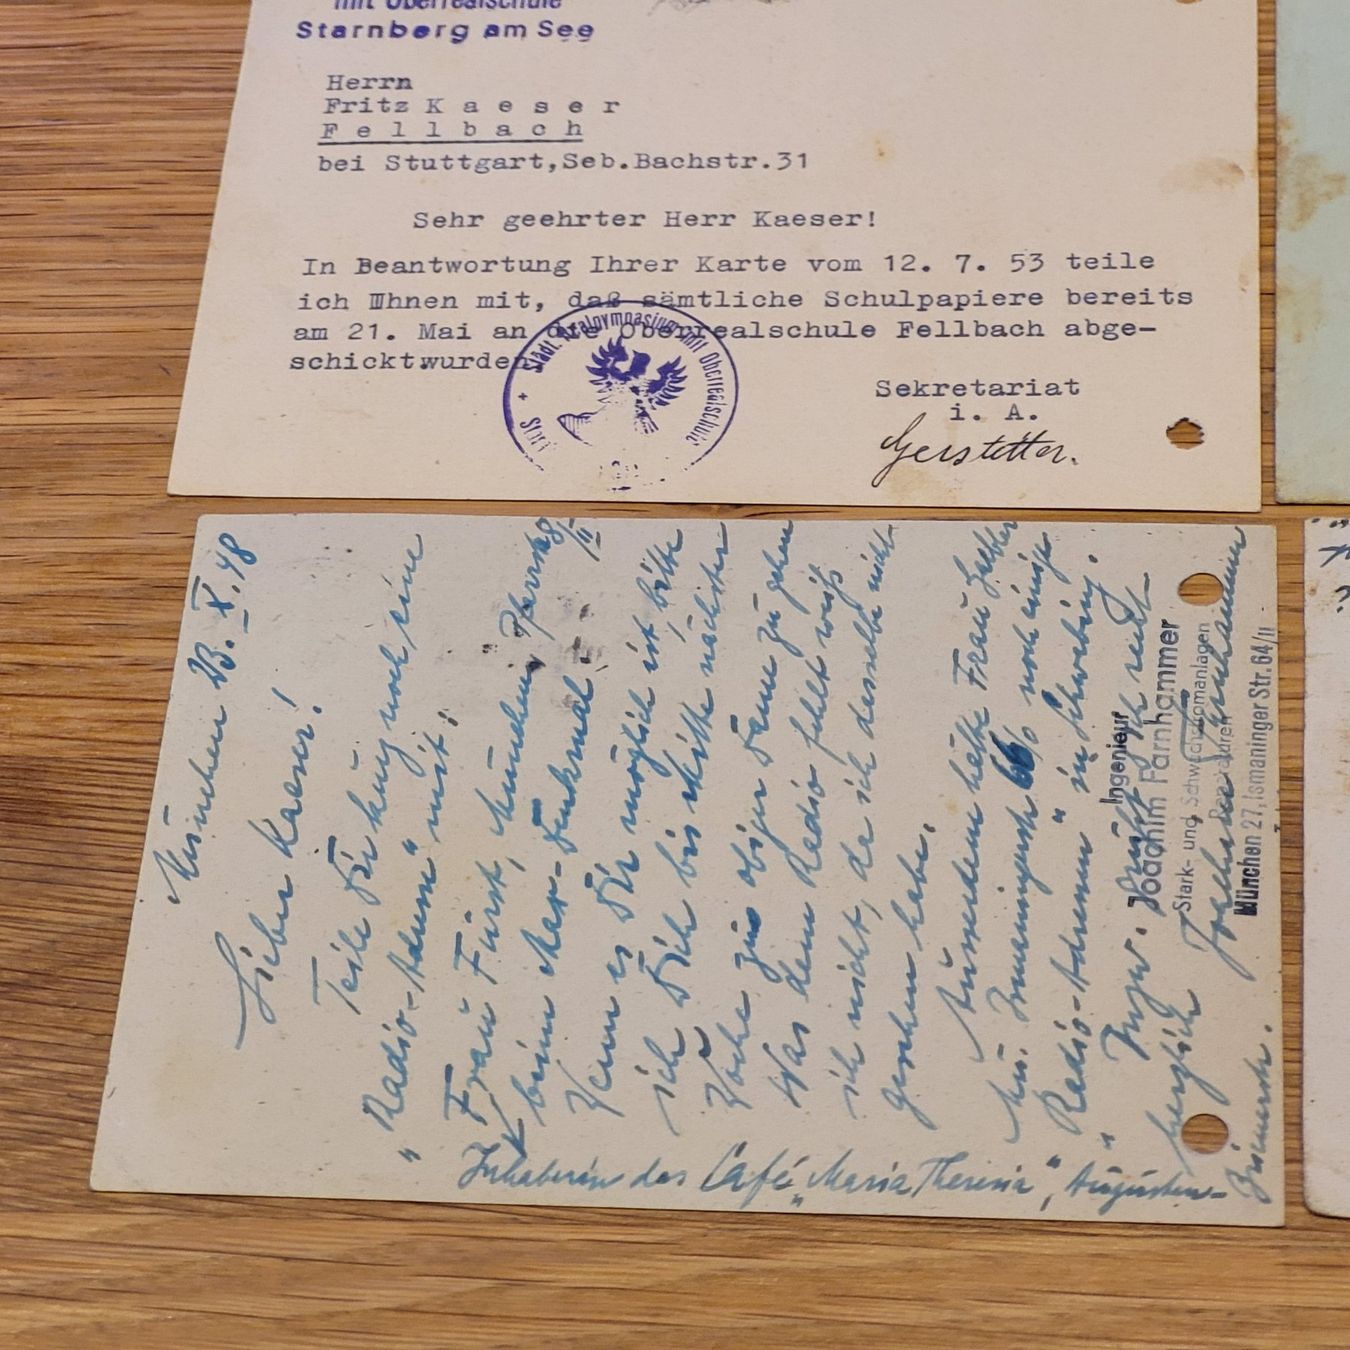 mit Oberrealschule
Starnberg am See
Herrn
Fritz K a e s e r
F e l l b a c h
bei Stuttgart,Seb.Bachstr.31
Sehr geehrter Herr Kaeser!
In Beantwortung Ihrer Karte vom 12. 7. 53 teile
ich Ihnen mit, daß sämtliche Schulpapiere bereits
am 21. Mai an die Oberrealschule Fellbach abge-
schickt wurden
Städt. Realgymnasium mit Oberrealschule
Sekretariat
i. A.
Gerstetter.
München X.48
Lieber Kaeser!
Teile Dir kurz noch eine
"Radio-Adresse" mit:
Frau Fürst, München,
beim Max-Denkmal
Wenn es Dir möglich ist, bitte
ich Dich bis Mitte nächster
Woche zus obiger Dame zu gehen
Was dem Radio fehlt weiß
ich nicht, da ich dasselbe nicht
gesehen habe.
Ausserdem hätte Frau
noch einige
"Radio-Adressen" in Schwabing.
Inzw. grüßt Dich recht
herzlich
Inhaberin des Café "Maria Theresia", Augusten-
Ingenieur
Joachim Farnhammer
Stark- und Schwachstromanlagen
Reparaturen
München 27, Ismaninger Str. 64/II